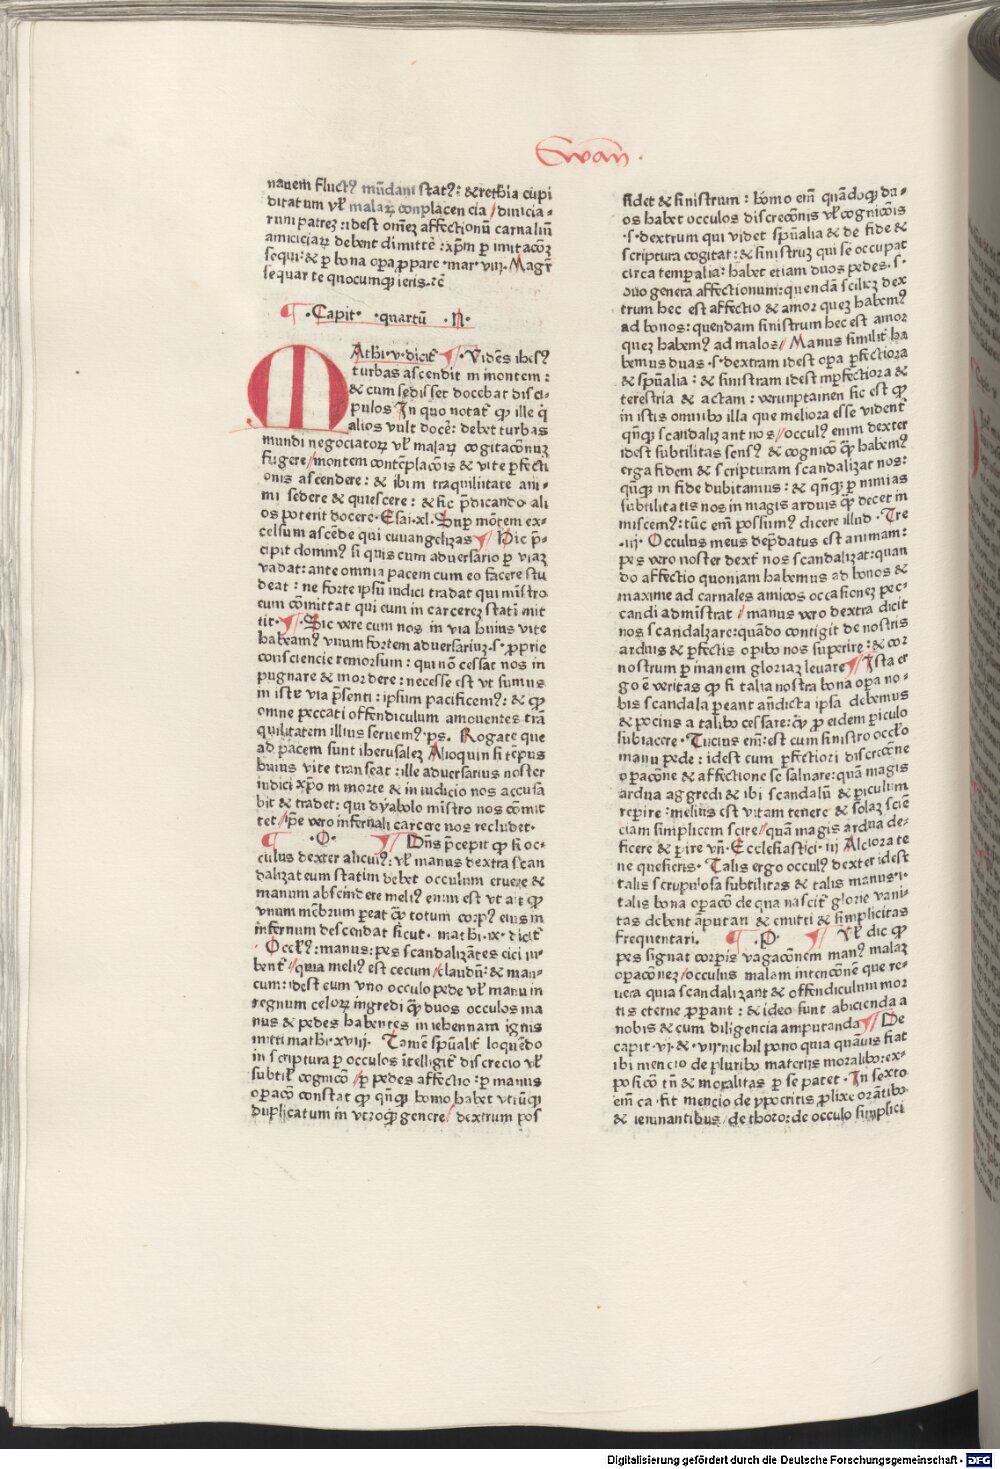 Ewan̄.
nauem fluctꝰ mūdani statꝰ: & rethia cupi
ditatum vl̄ malaꝝ conplacencia / dinicia-
rum patreꝫ: idest om̄eꝫ affectionū carnaliū
amiciciaꝝ debent dimitte᷑: xp̄m ꝑ imitacōꝫ
sequi: & ꝑ bona oꝑa ꝓppare ·mar·viij. Magr̄
sequar te quocumqꝫ ieris.⁊c̄
¶ ·Capit· ·quartū ·N·
MAthi·v·dicit᷑ ¶ ·Vidēs ihesꝰ
turbas ascendit in montem:
& cum sedisset docebat disci-
pulos In quo notat᷑ qꝙ ille q̇
alios vult docē: debet turbas
mundi negociatoꝝ vl̄ malaꝝ cogitacōnuꝫ
fugere / montem contēplacōis & vite ꝑfecti
onis ascendere: & ibi in traquilitate ani-
mi sedere & quiescere: & sic p̄dicando ali
os poterit docere· Esai·xl· Suꝑ mōtem ex-
celsum ascēde qui euuangelizas ¶ Hic p̄-
cipit dominꝰ si quis cum aduersario ꝑ viaꝫ
vadat: ante omnia pacem cum eo facere stu
deat: ne forte ipsū iudici tradat qui mīstro
eum cōmittat qui eum in carcereꝫ statī mit
tit· ¶ ·Sic vere cum nos in via huius vite
habeamꝰ vnum fortem aduersariuꝫ·s·ꝓprie
consciencie remorsum: qui nō cessat nos in
pugnare & mordere: necesse est vt sumus
in iste via p̄senti: ipsum pacificemꝰ: & qꝙ
omne peccati offendiculum amouentes trā
quilitatem illius seruemꝰ·ps. Rogate que
ad pacem sunt iherusaleꝫ Alioquin si tēpus
huius vite transeat: ille aduersarius noster
iudici xp̄o in morte & in iudicio nos accusa
bit & tradet: qui dyabolo mīstro nos cōmit
tet / ip̄e vero infernali carcere nos recludet·
¶ ·O· ¶ Dn̄s p̄cepit qꝙ si oc-
culus dexter alicuiꝰ: vl̄ manus dextra scan
dalizat eum statim debet occulum eruere &
manum abscindere meliꝰ enim est vt ait qꝙ
vnum mēbrum ꝑeat q̄ꝫ totum corpꝰ eius in
infernum descendat sicut· mathi·ix·dicit᷑
·Occlꝰ: manus: pes scandalizātes eici iu-
bent᷑ / quia meliꝰ est cecum / claudū: & man-
cum: idest eum vno occulo pede vl̄ manu in
regnum celoꝝ ingredi q̄ꝫ duos occulos ma
nus & pedes habentes in iehennam ignis
mitti mathi·xviij· Tamē spūalit᷑ loquēdo
in scriptura ꝑ occulos ītelligit᷑ discrecio vl̄
subtil᷑ cognicō / ꝑ pedes affectio: ꝑ manus
oꝑacō constat qꝙ qn̄qꝫ homo habet vtrūqꝫ
duplicatum in vtroqꝫ genere / dextrum pos
sidet & sinistrum: homo em̄ quādoqꝫ du-
os habet occulos discrecōnis vl̄ cognicōis
·s·dextrum qui videt spūalia & de fide &
scriptura cogitat: & sinistruꝫ qui se occupat
circa temꝑalia: habet etiam duos pedes·s·
duo genera affectionum: quendā sciliceꝫ dex
trum hec est affectio & amor queꝫ habemꝰ
ad bonos: quendam sinistrum hec est amor
queꝫ habemꝰ ad malos / Manus similit᷑ ha
bemus duas·s·dextram idest oꝑa ꝑfectiora
& spūalia: & sinistram idest inꝑfectiora &
terestria & actam: verumptamen sic est qꝙ
in istis omnibꝰ illa que meliora esse vident᷑
qn̄qꝫ scandalizant nos / occulꝰ enim dexter
idest subtilitas sensꝰ & cognicō q̄ꝫ habemꝰ
erga fidem & scripturam scandalizat nos:
qn̄qꝫ in fide dubitamus: & qn̄qꝫ ꝑ nimias
subtilitatis nos in magis arduis q̄ꝫ decet in
miscemꝰ: tūc em̄ possumꝰ dicere illud· Tre
·iij· Occulus meus dep̄datus est animam:
pes vero noster dext᷑ nos scandalizat: quan
do affectio quoniam habemus ad bonos &
maxime ad carnales amicos occasioneꝫ pec-
candi admīstrat / manus vero dextra dicit
nos scandalzare: quādo contigit de nostris
arduis & ꝑfectis oꝑibꝰ nos suꝑire: & cor
nostrum ꝑ inanem gloriaꝫ leuare ¶ Ista er
go ē veritas qꝙ si talia nostra bona oꝑa no-
bis scandala ꝑeant an̄dicta ipsa debemus
& pocius a talibꝰ cessare: q̄ꝫ ꝓ eidem ꝑiculo
subiacere· Tucius em̄: est cum sinistro occl̄o
manu pede: idest cum ꝑfectiori discrecōne
oꝑacōne & affectione se saluare: quā magis
ardua aggredi & ibi scandalū & ꝑiculum
reꝑire: melius est vitam tenere & solaꝫ sciē
ciam simplicem scire / quā magis ardua de-
ficere & ꝑire vn̄· Ecclesiastici·iij Alciora te
ne quesieris· Talis ergo occulꝰ dexter idest
talis scrupulosa subtilitas & talis manus·i·
talis bona oꝑacō de qua nascit᷑ glorie vani-
tas debent amputari & emitti & simplicitas
frequentari. ¶ ·P· ¶ Vl̄ dic qꝙ
pes signat corꝑis vagacōnem manꝰ malaꝫ
oꝑacōneꝫ / occulus malam intencōnē que re-
uera quia scandalizant & offendiculum mor
tis eterne ꝓꝑant: & ideo sunt abicienda a
nobis & cum diligencia amputanda ¶ De
capit·vj·& vij·nichil pono quia quāuis fiat
ibi mencio de pluribꝰ materiis moralibꝰ: ex-
posicō tn̄ & moralitas ꝑ se patet· In sexto
em̄ ca·fit mencio de ypocritis ꝓlixe orātibꝰ
& ieiunantibus / de thoro: de occulo simplici